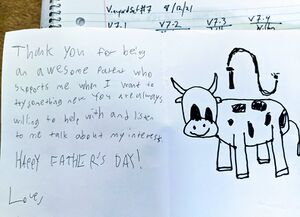 8/12/21
V7.1 V7.2 V7.3 V7.4
Thank you for being
an awesome parent who
supports me when I want to
try something new. You are always
willing to help with and listen
to me talk about my interest
HAPPY FATHER'S DAY!
Love,